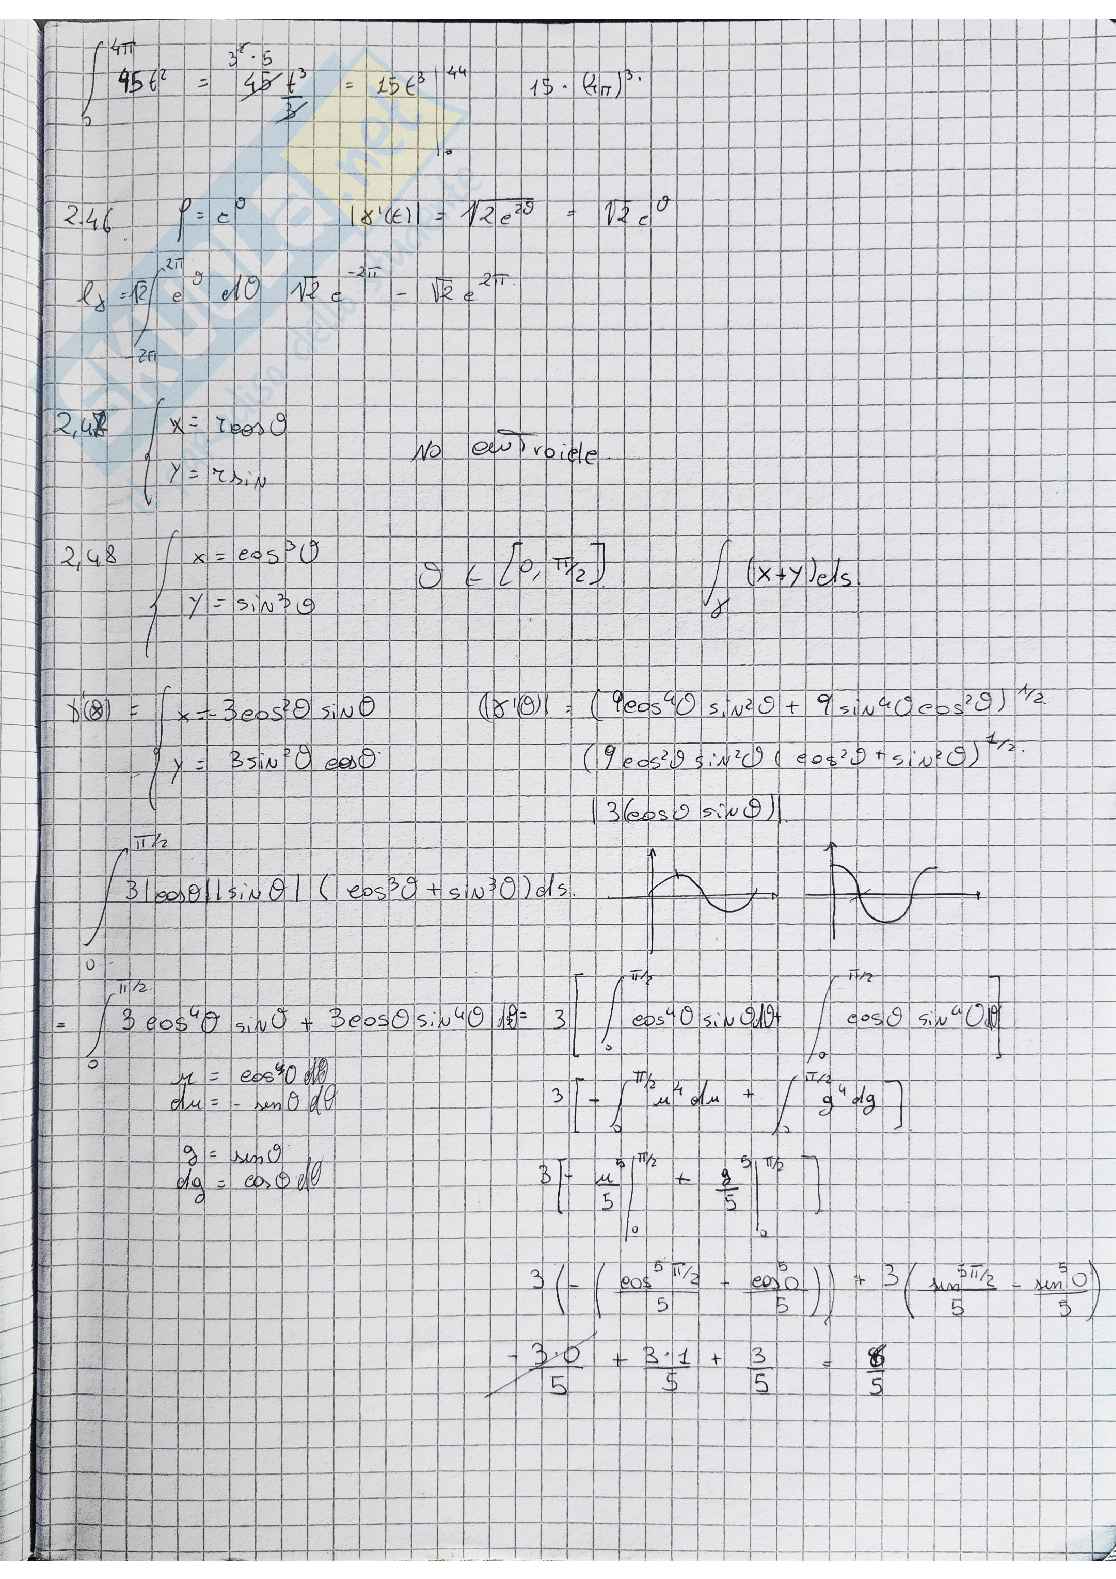 ∫₀^{4π} 45t² = 3²·5 45 t³/3 = 15t³ |₀^{44} 15·(4π)³.
2.46 ρ = e^θ |γ'(t)| = √2e^{2θ} = √2 e^θ
lγ = √2 ∫_{-2π}^{2π} e^θ dθ √2 e^{-2π} - √2 e^{2π}.
2,47 { x = r cosθ
y = r sin
No centroide.
2,48 { x = cos³θ θ ∈ [0, π/2] ∫_γ (x+y)ds.
y = sin³θ
γ'(θ) = { x = -3cos²θ sinθ |γ'(θ)| = (9cos⁴θ sin²θ + 9sin⁴θcos²θ)^{1/2}.
y = 3sin²θ cosθ (9cos²θ sin²θ (cos²θ + sin²θ)^{1/2}.
|3(cosθ sinθ)|.
∫₀^{π/2} 3|cosθ||sinθ| (cos³θ + sin³θ)ds.
= ∫₀^{π/2} 3cos⁴θ sinθ + 3cosθ sin⁴θ dθ = 3[∫₀^{π/2} cos⁴θ sinθdθ + ∫₀^{π/2} cosθ sin⁴θdθ]
u = cos⁴θ dθ
du = - sinθ dθ 3[-∫₀^{π/2} u⁴du + ∫₀^{π/2} g⁴dg]
g = sinθ
dg = cosθ dθ 3[- u⁵/5 |₀^{π/2} + g⁵/5 |₀^{π/2}]
3(-(cos⁵π/2 /5 - cos⁵0/5)) + 3(sin⁵π/2 /5 - sin⁵0/5)
- 3·0/5 + 3·1/5 + 3/5 = 6/5
SKUOLA.net